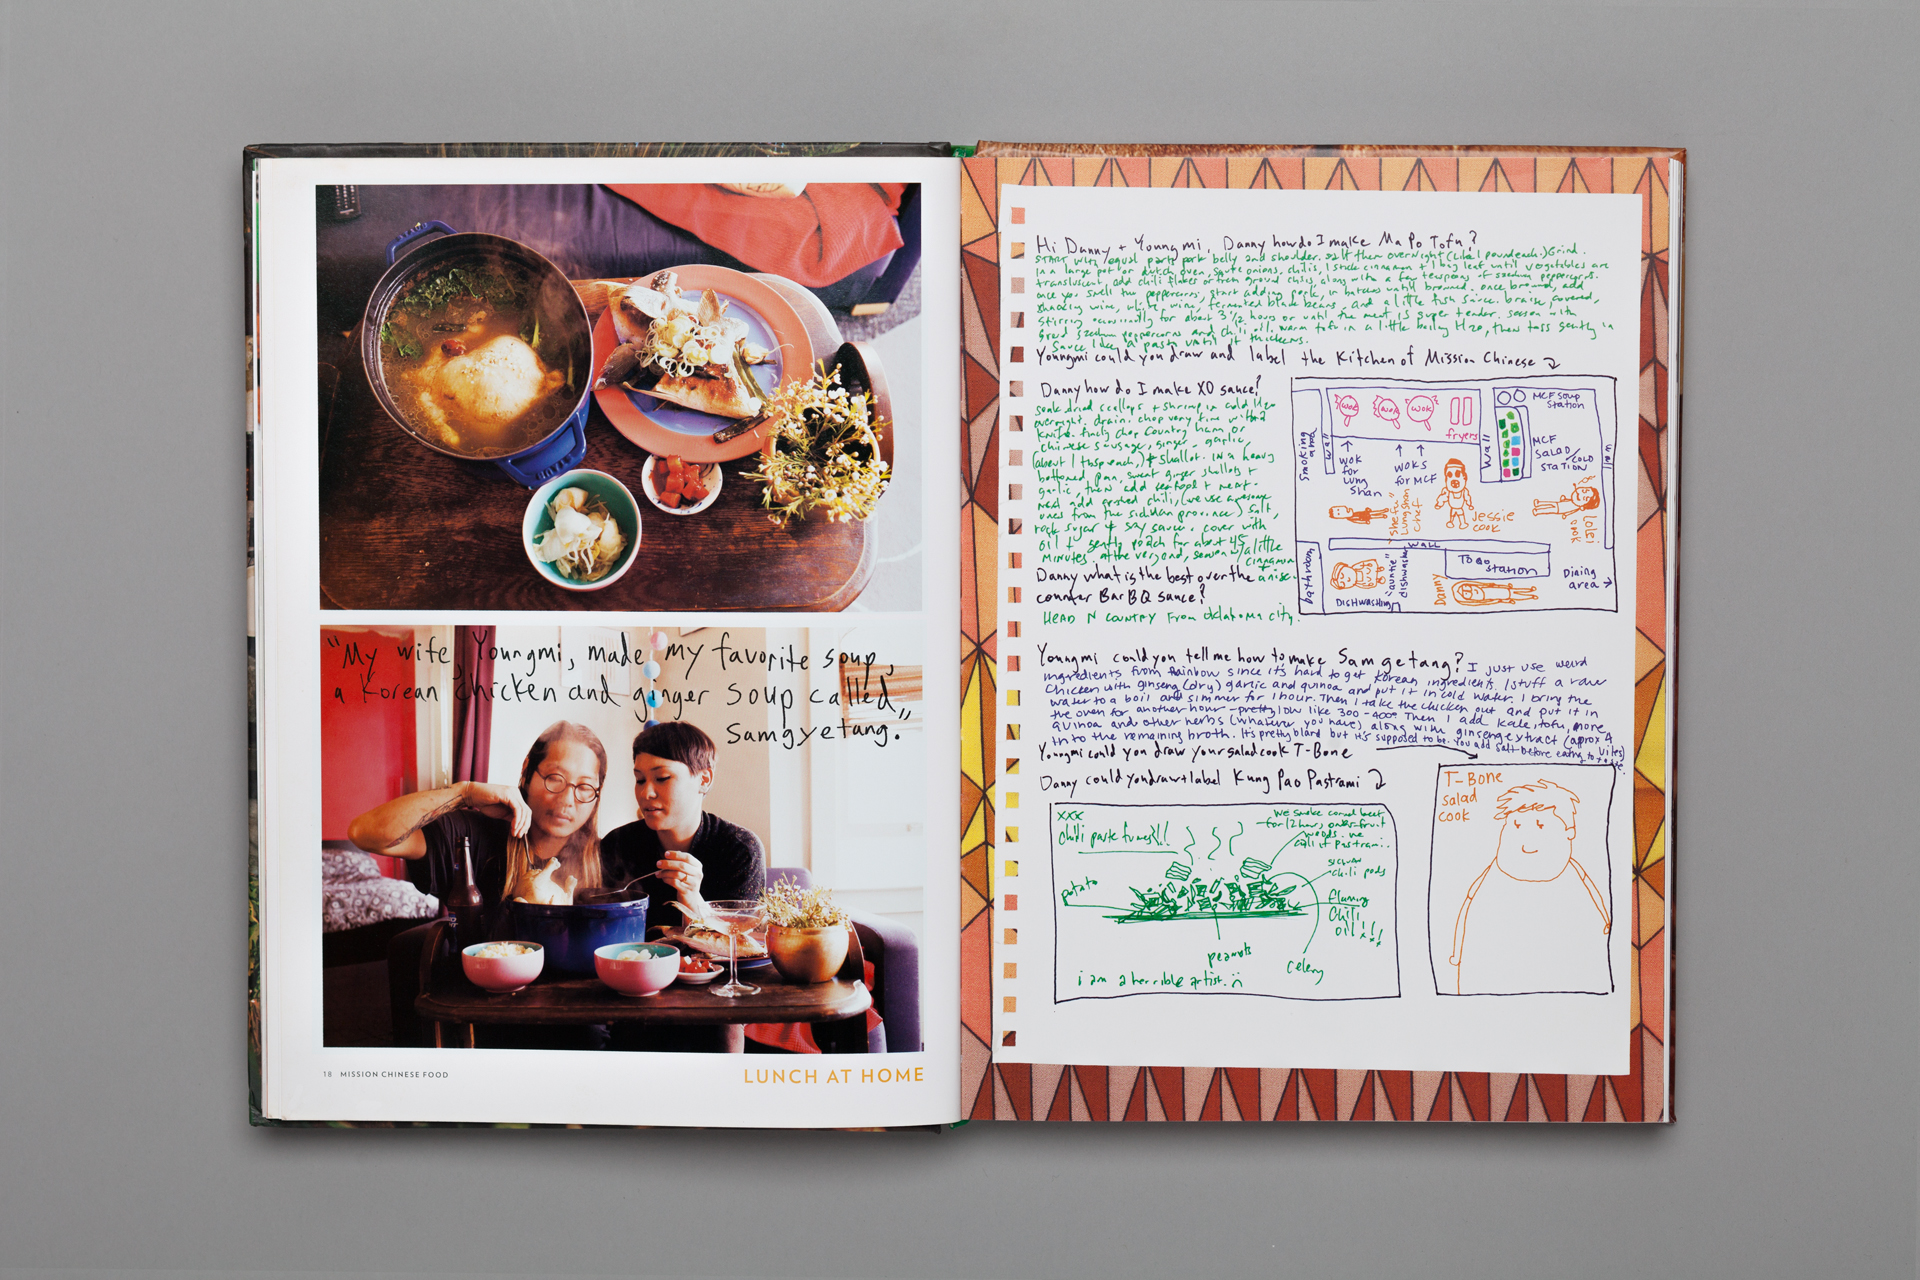 "My wife, Youngmi, made my favorite soup,
a Korean chicken and ginger soup called
Samgyetang."
18 MISSION CHINESE FOOD
LUNCH AT HOME
Hi Danny + Youngmi, Danny how do I make Ma Po Tofu?
START with equal parts pork belly and shoulder. salt them overnight (like 1 pound each.) Grind.
In a large pot or dutch oven, saute onions, chilis, 1 stick cinnamon + 1 bay leaf until vegetables are
translucent, add chili flakes or fresh ground chilis, along with a few teaspoons of szechuan peppercorns.
once you smell the peppercorns, start adding pork, in batches until browned. once browned, add
shaoxing wine, white wine, fermented black beans, and a little fish sauce. braise, covered,
stirring occasionally for about 3 1/2 hours or until the meat is super tender. season with
ground szechuan peppercorns and chili oil. warm tofu in a little boiling H2O, then toss gently in
sauce like a pasta until it thickens.
Youngmi could you draw and label the Kitchen of Mission Chinese
Danny how do I make XO sauce?
soak dried scallops + shrimp in cold H2O
overnight. drain. chop very fine with a
knife. finely chop country ham or
chinese sausage, ginger, garlic,
(about 1 tbsp each,) + shallot. IN a heavy
bottomed pan, sweat ginger shallots +
garlic, then add seafood + meat.
next add crushed chili, (we use awesome
ones from the sichuan province) salt,
rock sugar + soy sauce. cover with
oil + gently poach for about 45
minutes. at the very end, season w/ a little
cinnamon
anise.
Danny what is the best over the
counter Bar BQ sauce?
HEAD N COUNTRY From Oklahoma city.
smoking area
wall
wok
wok
wok
fryers
wall
MCF Soup
station
MCF
Salad/cold
station
wall
wok
for
Lung
Shan
woks
for MCF
Lung Shan
chef
Jessie
cook
lolei
cook
wall
bathroom
"auntie"
dishwasher
DISHWASHING
Danny
To go
station
Dining
area →
Youngmi could you tell me how to make Samgetang? I just use weird
ingredients from Rainbow since it's hard to get Korean ingredients. I stuff a raw
chicken with ginseng (dry) garlic and quinoa and put it in cold water. I bring the
water to a boil and simmer for 1 hour. Then I take the chicken out and put it in
the oven for another hour - pretty low like 300-400° Then I add kale, tofu, more
quinoa and other herbs (whatever you have) along with ginseng extract (aprox 4
vi les)
to the remaining broth. It's pretty bland but it's supposed to be. You add salt before eating to taste.
Youngmi could you draw your salad cook T-Bone
Danny could you draw + label Kung Pao Pastrami
XXX
chili paste fumes!!
we smoke corned beef
for 12 hours, over fruit
woods. we
call it Pastrami.
sichuan
chili pods
potato
flaming
Chili
oil!!
peanuts
celery
i am a horrible artist.
T-Bone
salad
cook